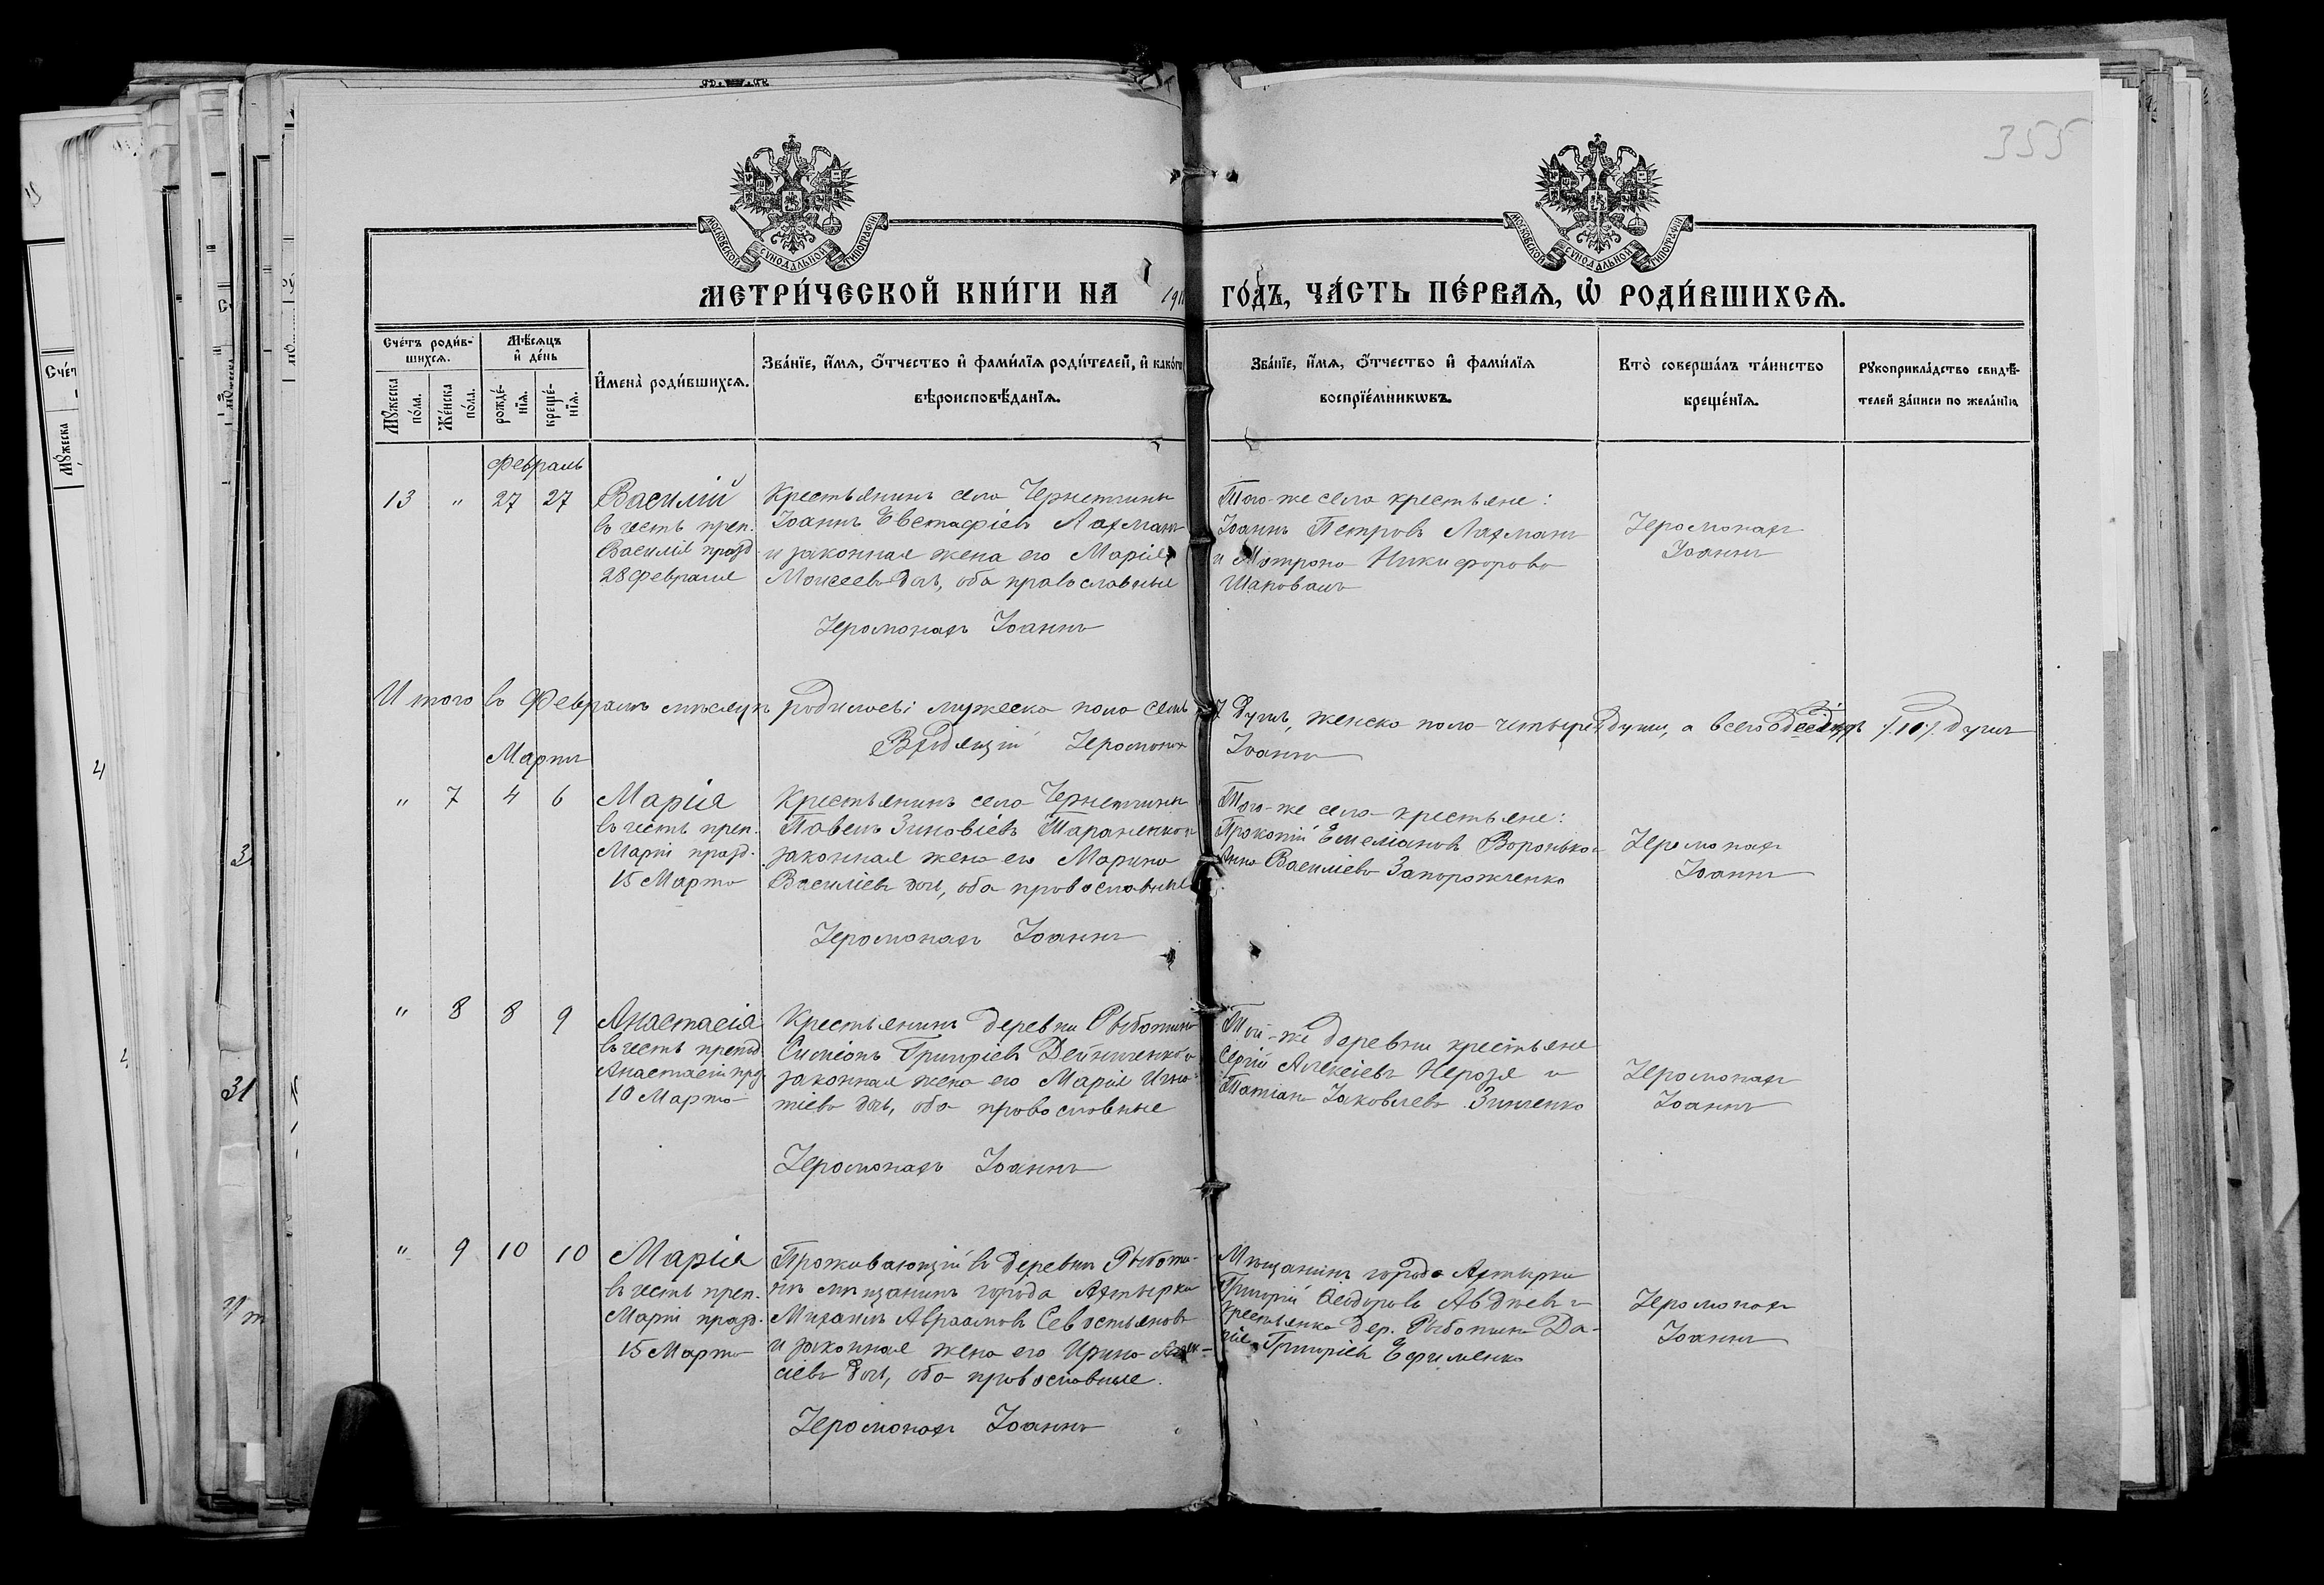 355
МОСКОВСКОЙ СѴНОДАЛЬНОЙ ТИПОГРАФІИ
МОСКОВСКОЙ СѴНОДАЛЬНОЙ ТИПОГРАФІИ
МЕТРИ́ЧЕСКОЙ КНИ́ГИ НА 191 ГО́ДЪ, ЧА́СТЬ ПЕ́РВАѦ, Ѡ҆ РОДИ́ВШИХСѦ.
Сче́тъ роди́в-
шихсѧ.
Мꙋ́жеска
по́ла.
Же́нска
по́ла.
Мѣ́сѧцъ
и҆ де́нь
рожде́-
нїѧ.
креще́-
нїѧ.
И҆мена̀ роди́вшихсѧ.
Зва́нїе, и҆́мѧ, ѻ҆́тчество и҆ фами́лїѧ роди́телей, и҆ како́гѡ
вѣроисповѣ́данїѧ.
Зва́нїе, и҆́мѧ, ѻ҆́тчество и҆ фами́лїѧ
воспрїе́мникѡвъ.
Кто̀ соверша́лъ та́инство
креще́нїѧ.
Рꙋкоприкла́дство свидѣ́-
телей за́писи по жела́нїю
Февраль
13 " 27 27
Василій
въ честь преп.
Василія празд.
28 февраля
Крестьянинъ села Чернетчины
Іоаннъ Евстафіевъ Лахманъ
и законная жена его Марія
Моисеева доч, оба православные
Іеромонахъ Іоаннъ
Того-же села крестьяне:
Іоаннъ Петровъ Лахманъ
и Мотрона Никифорова
Шаповалъ
Іеромонахъ
Іоаннъ
Итого въ Февралѣ мѣсяцѣ родилось: мужеска пола семь 7 душъ, женска пола четыре души, а всего /.10/. душъ
Іеромонахъ Іоаннъ
Мартъ
" 7 4 6
Марія
въ честь преп.
Маріи празд.
15 Марта
Крестьянинъ села Чернетчины
Павелъ Зиновіевъ Тараненко и
законная жена его Марина
Василіева доч, оба православные
Іеромонахъ Іоаннъ
Того-же села крестьяне:
Прокопій Емеліановъ Воронько и
Анна Василіева Запорожченко
Іеромонахъ
Іоаннъ
" 8 8 9
Анастасія
въ честь препод.
Анастасіи прд.
10 Марта
Крестьянинъ деревни Рыботина
Симеонъ Григоріевъ Дейниченко и
законная жена его Марія Игна-
тіева доч, оба православные
Іеромонахъ Іоаннъ
Той-же деревни крестьяне
Сергій Алексіевъ Нерозя и
Татіана Іаковлева Зинченко
Іеромонахъ
Іоаннъ
" 9 10 10
Марія
въ честь преп.
Маріи празд.
15 Марта
Проживающій въ деревни Рыботи-
нѣ мѣщанинъ города Ахтырки
Михаилъ Авраамовъ Севостьяновъ
и законная жена его Ирина Алек-
сіева доч, оба православные.
Іеромонахъ Іоаннъ
Мѣщанинъ города Ахтырки
Григорій Ѳеодоровъ Авдѣевъ и
крестьянка дер. Рыботина Да-
рія Григоріева Ефименко
Іеромонахъ
Іоаннъ